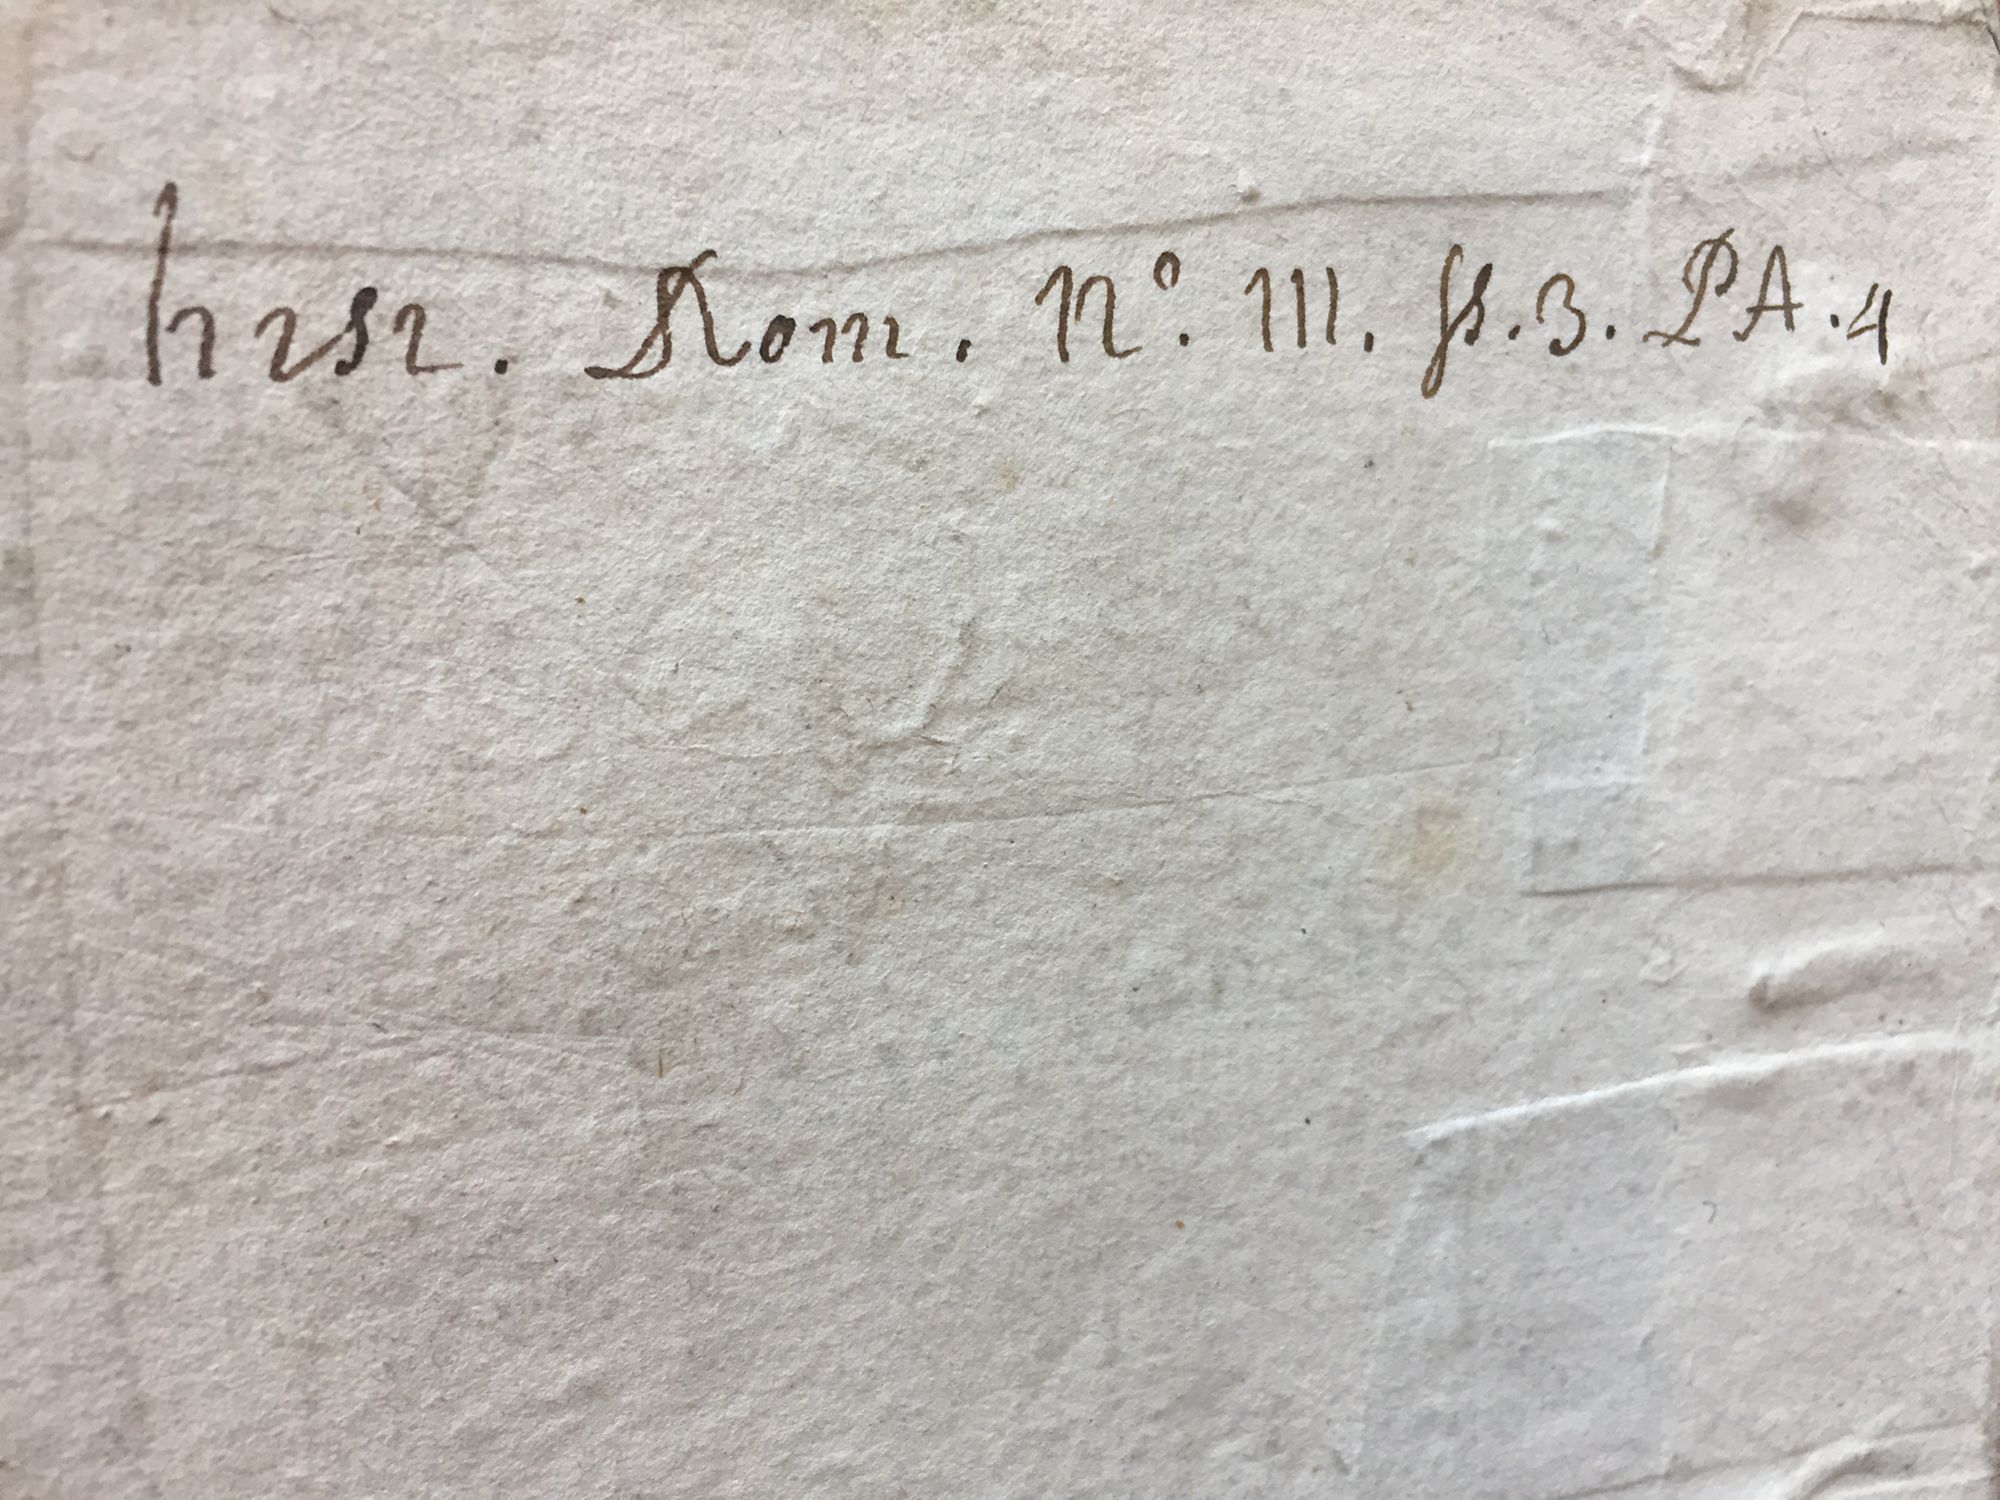 hrsr. Rom. N°. III. fs. 3. PA. 4